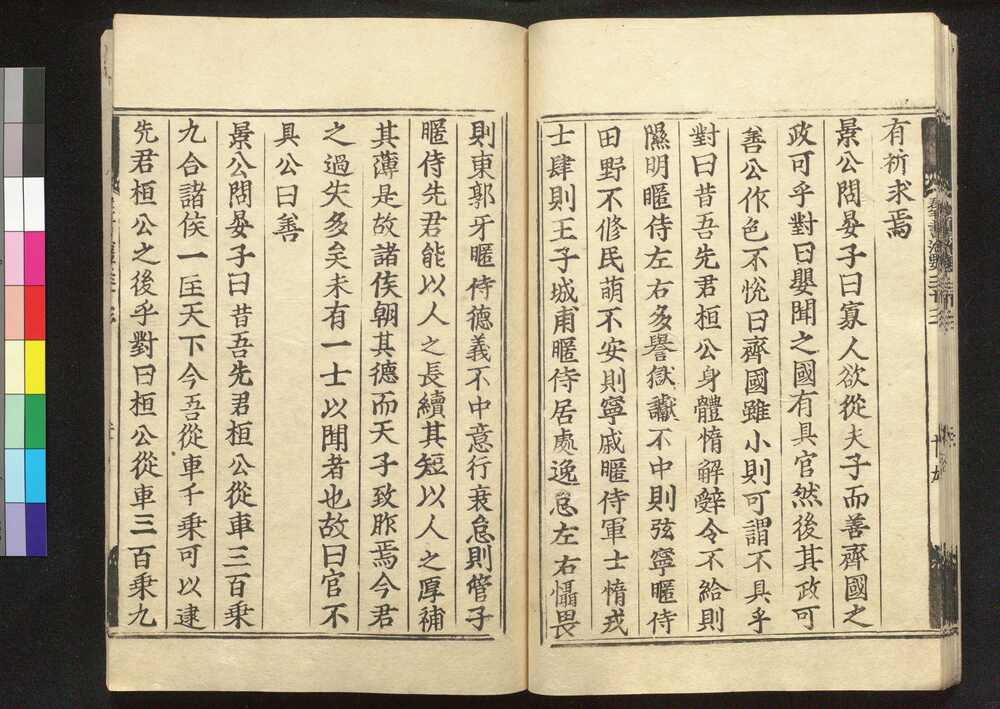 有祈求焉
景公問晏子曰寡人欲從夫子而善齊國之
政可乎對曰嬰聞之國有具官然後其政可
善公作色不悅曰齊國雖小則可謂不具乎
對曰昔吾先君桓公身體惰解辭令不給則
隰明暱侍左右多譽獄讞不中則弦寧暱侍
田野不修民萌不安則寧戚暱侍軍士惰戎
士肆則王子城甫暱侍居處逸怠左右懾畏
則東郭牙暱侍德義不中意行衰怠則管子
暱侍先君能以人之長續其短以人之厚補
其薄是故諸侯朝其德而天子致胙焉今君
之過失多矣未有一士以聞者也故曰官不
具公曰善
景公問晏子曰昔吾先君桓公從車三百乘
九合諸侯一匡天下今吾從車千乘可以逮
先君桓公之後乎對曰桓公從車三百乘九